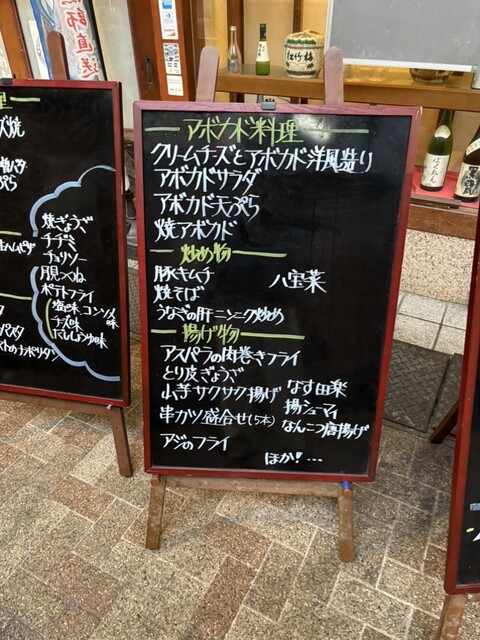 アボカド料理
クリームチーズとアボカド洋風造り
アボカドサラダ
アボカド天ぷら
焼アボカド
炒め物
豚キムチ
八宝菜
焼そば
うなぎの肝ニンニク炒め
揚げ物
アスパラの肉巻きフライ
とり皮ぎょうざ
小芋サクサク揚げ
なす田楽
揚シューマイ
串カツ盛合せ(5本)
なんこつ唐揚げ
アジのフライ
ほか!…
焼ぎょうざ
チヂミ
チョリソー
月見つくね
ポテトフライ
塩味 コンソメ味
チーズ味
にんにくしょうゆ味
松竹梅
師直送